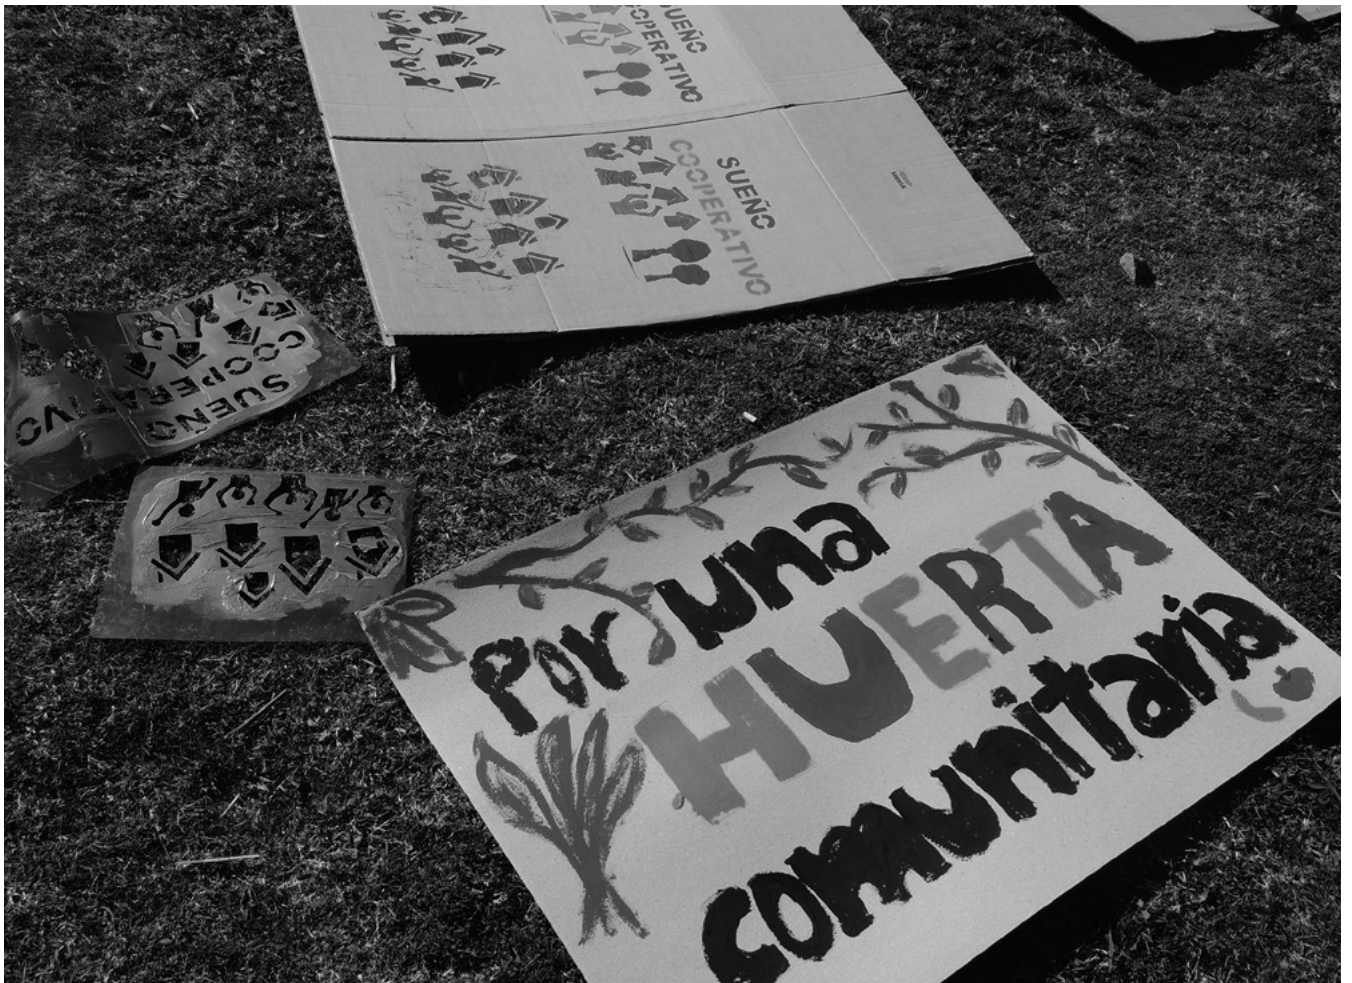 SUEÑO
COOPERATIVO
SUEÑO
COOPERATIVO
COOPERATIVO
SUEÑO
Por una
HUERTA
comunitaria